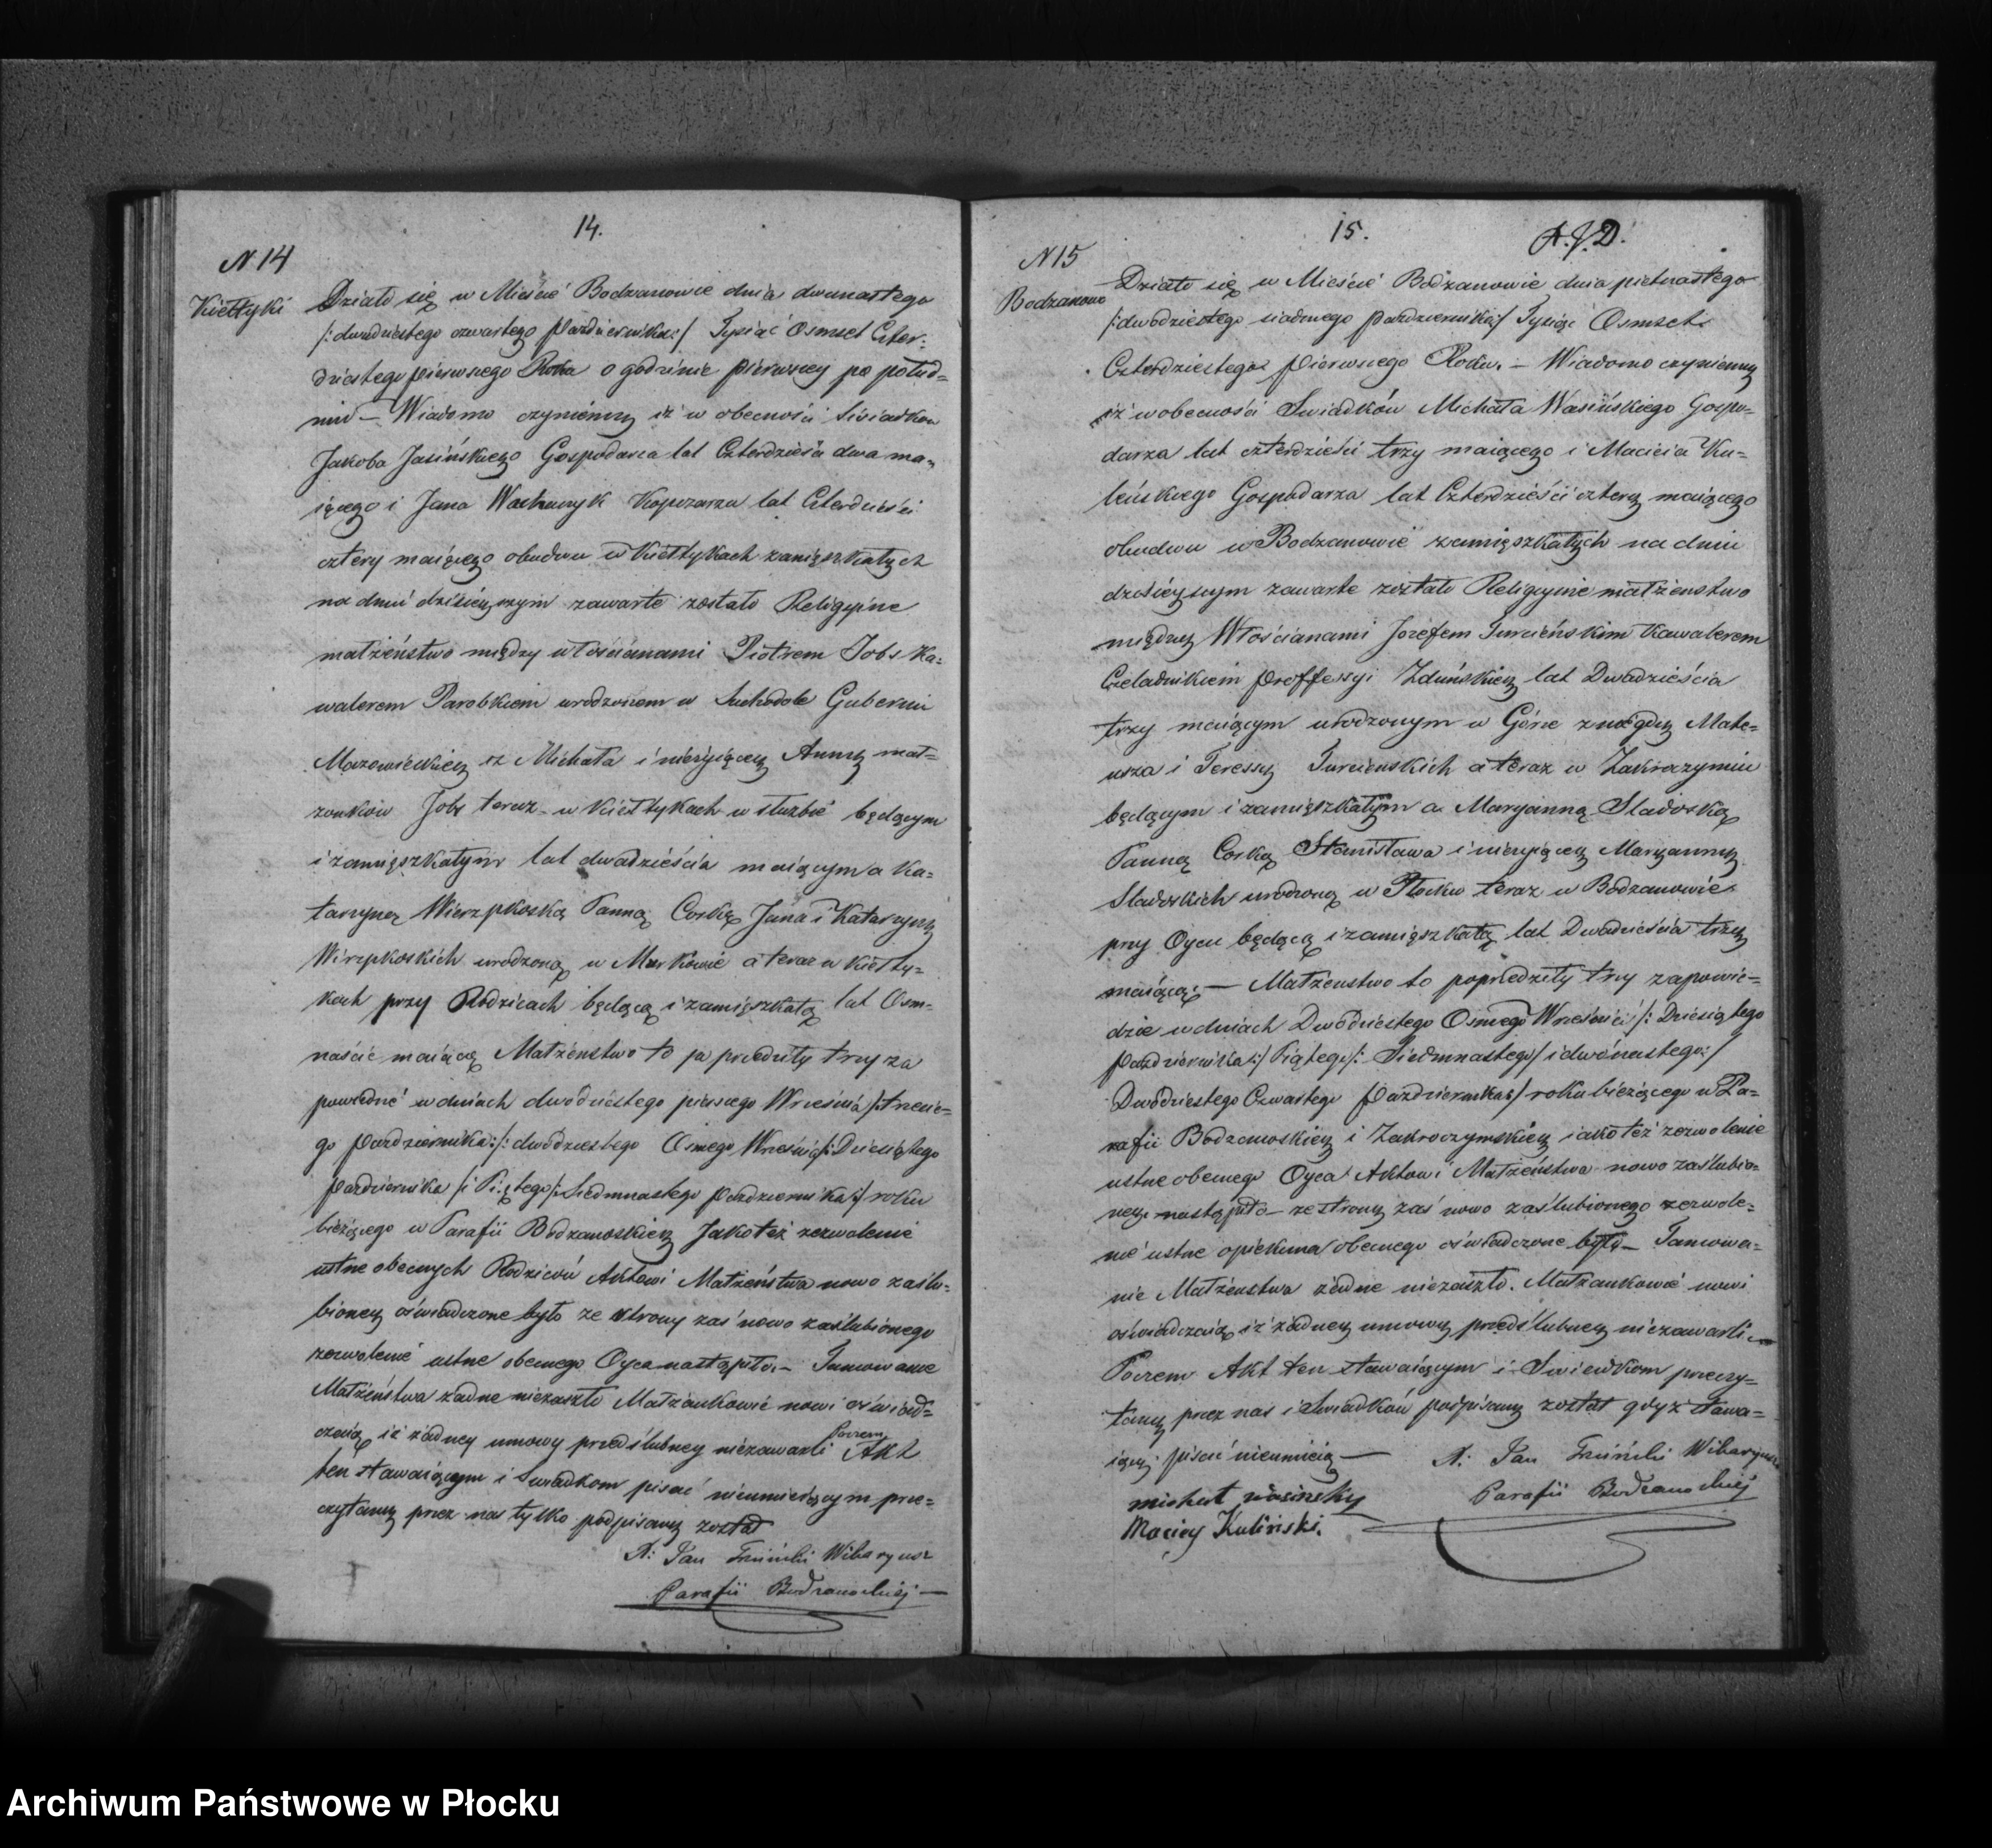 14.
N 14
Kiełtyki
Działo się w Mieście Bodzanowie dnia dwunastego
/:dwudziestego czwartego Października:/ Tysiąc Osmset Czter-
dziestego pierwszego Roku o godzinie pierwszey po połud-
niu — Wiadomo czyniemy iż w obecności Swiadków
Jakoba Jasińskiego Gospodarza lat Czterdzieści dwa ma-
iącego i Jana Kopczarza lat Czterdzieści
cztery maiącego obudwu w Kiełtykach zamięszkałych
na dniu dzisieyszym zawarte zostało Religyine
małżeństwo między włościanami Piotrem Jobs Ka-
walerem Parobkiem urodzonem w Suchodole Gubernii
Mazowieckiey z Michała i nieżyiącey Anny mał-
żonków Jobs teraz w Kiełtykach w służbie będącym
i zamięszkałym lat dwadzieścia maiącym a Ka-
tarzyną Wierzpkoską Panną Corką Jana i Katarzyny
Wirzpkoskich urodzoną w Murkowie a teraz w Kiełty-
kach przy Rodzicach będącą i zamięszkałą lat Osm-
naście maiącą Małżeństwo to poprzedziły trzy za
powiedzie w dniach dwódziestego pierwszego Wrzesnia /:trzecie-
go Października:/ dwódziestego Osmego Wrzesnia /:Dziesiątego
Października / i Piątego /:Siedmnastego Października:/ roku
bieżącego w Parafii Bodzanoskiey Jakoteż zezwolenie
ustne obecnych Rodziców Aktowi Małżeństwa nowo zaślu-
bioney oświadczone było ze strony zaś nowo zaślubionego
zezwolenie ustne obecnego Oyca nastąpiło.— Tamowanie
Małżeństwa żadne niezaszło Małżonkowie nowi oświad-
czaią iż żadney umowy przedślubney niezawarli Poczem Akt
ten stawaiącym i Swiadkom pisać nieumieiącym prze-
czytany przez nas tylko podpisany został
X: Jan Wikaryusz
Parafii Bodzanoskiej —
15.
A.J.D.
N 15
Bodzanowo
Działo się w Mieście Bodzanowie dnia pietnastego
/:dwódziestego siódmego Października:/ Tysiąc Osmset
Czterdziestego pierwszego Roku. — Wiadomo czyniemy
iż w obecności Swiadków Michała Wasińskiego Gospo-
darza lat czterdzieści trzy maiącego i Macieia Ku-
lińskiego Gospodarza lat Czterdzieści cztery maiącego
obudwu w Bodzanowie zamięszkałych na dniu
dzisieyszym zawarte zostało Religyine małżeństwo
między Włościanami Jozefem Turcieńskim Kawalerem
Czeladnikiem proffessyi Zduńskiey lat Dwadzieścia
trzy maiącym urodzonym w Górze z niegdy Mate-
usza i Teressy Turcieńskich a teraz w Zakroczymiu
będącym i zamięszkałym a Maryanną Sladoską
Panną Corką Stanisława i nieżyiącey Maryanny
Sladoskich urodzoną w Płocku teraz w Bodzanowie
przy Oycu będącą i zamięszkałą lat Dwadzieścia trzy
maiącą — Małżeństwo to poprzedziły trzy zapowie-
dzie w dniach Dwódziestego Osmego Wrzesnia /: Dziesiątego
Października:/ Piątego /: Siedmnastego/ i dwónastego:/
Dwódziestego Czwartego Października:/ roku bieżącego w Pa-
rafii Bodzanoskiey i Zakroczymskiey iakoteż zezwolenie
ustne obecnego Oyca Aktowi Małżeństwa nowo zaślubio-
ney nastąpiło — ze strony zaś nowo zaślubionego zezwole-
nie ustne opiekuna obecnego oświadczone było — Tamowa-
nie Małżeństwa żadne niezaszło. Małżonkowie nowi
oświadczaią iż żadney umowy przedślubney niezawarli —
Poczem Akt ten stawaiącym i Swiadkom przeczy-
tany przez nas i Swiadków podpisany został gdyż stawa-
iący pisać nieumieią —
X: Jan Wikaryusz
Parafii Bodzanoskiej
michał wasinsky
Maciey Kuliński.
Archiwum Państwowe w Płocku